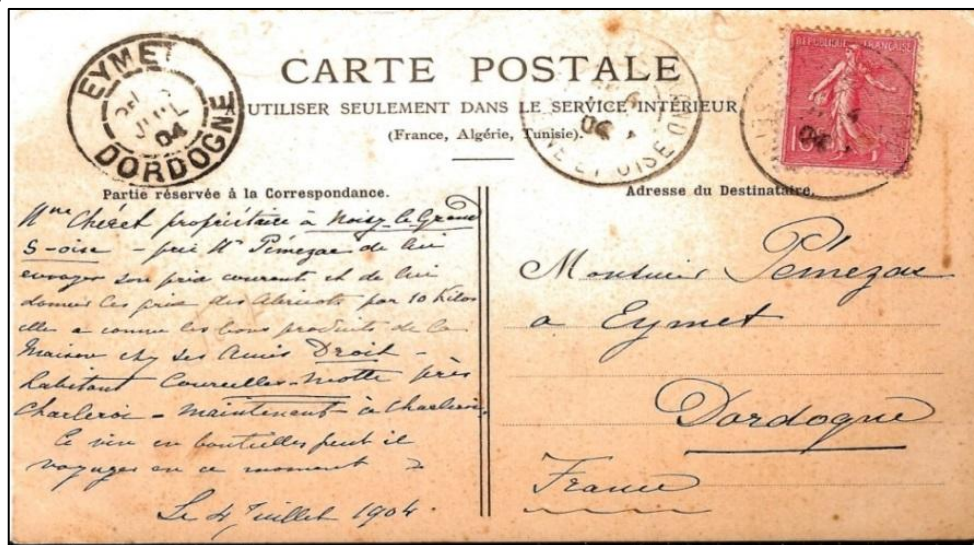 EYMET
JUIL
04
DORDOGNE
CARTE POSTALE
A UTILISER SEULEMENT DANS LE SERVICE INTÉRIEUR
(France, Algérie, Tunisie).
NE ET OISE
04
REPUBLIQUE FRANÇAISE
10
04
Partie réservée à la Correspondance.
Mme Chéret propriétaire à Noisy-le-Grand
S-oise - prie Mr Pémezac de lui
envoyer son prix courant et de lui
donner les prix des Abricots par 10 Kilos
elle a connu les bons produits de la
Maison chez ses Amis Droit -
habitant Courcelles-Motte près
Charleroi - Maintenant à Charleroi
Ce vin en bouteilles peut il
voyager en ce moment ?
Le 4 Juillet 1904
Adresse du Destinataire.
Monsieur Pémezac
a Eymet
Dordogne
France